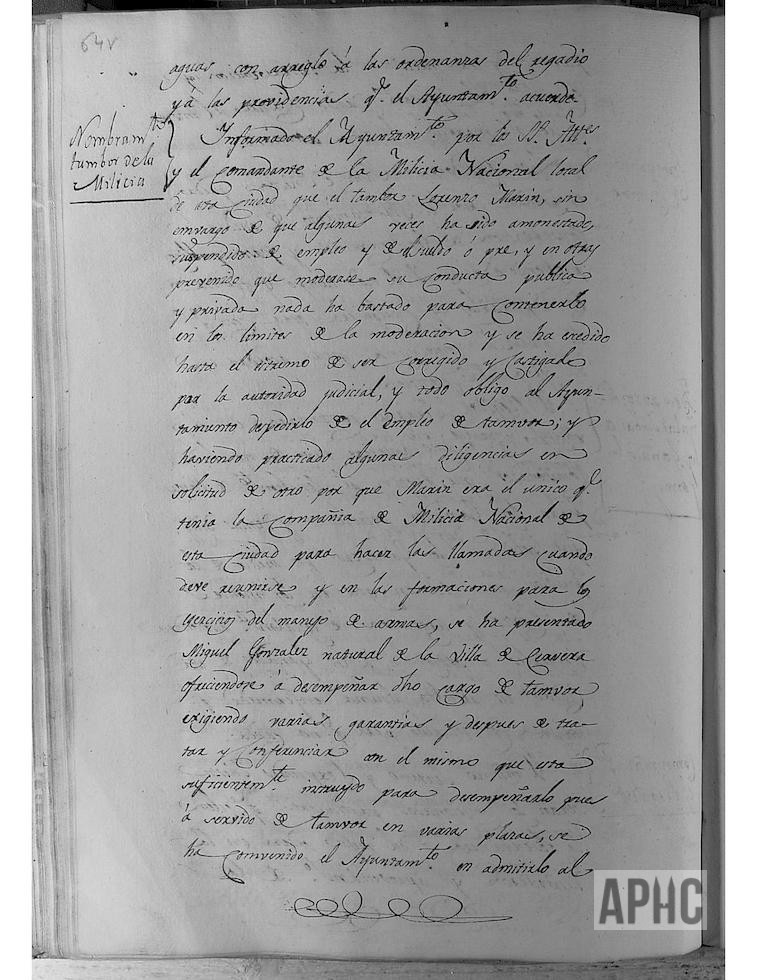 64v
aguas, con arreglo á las ordenanzas del regadio
y á las providencias q.e el Ayuntam.to acuerde
Nombram.to
tambor de la
Milicia
Informado el Ayuntam.to por los SS. Att.es
y el Comandante de la Milicia Nacional local
de esta Ciudad que el tambor Lorenzo Marin, sin
emvargo de que algunas veces ha sido amonestado,
suspendido de empleo y de sueldo ó pre, y en otras
prevenido que moderase su conducta publica
y privada nada ha bastado para contenerlo
en los limites de la moderacion y se ha exedido
hasta el extremo de ser corregido y castigado
por la autoridad judicial, y todo obligo al Ayun-
tamiento despedirlo de el empleo de tamvor; y
haviendo practicado algunas diligencias en
solicitud de otro por que Marin era el unico q.e
tenia la Compañia de Milicia Nacional de
esta Ciudad para hacer las llamadas cuando
deve reunirse y en las formaciones para los
ejercicios del manejo de armas, se ha presentado
Miguel Gonzalez natural de la Villa de Cervera
ofreciendose á desempeñar dho cargo de tamvor
exigiendo varias garantias y despues de tra-
tar y Conferenciar con el mismo que esta
suficientem.te instruydo para desempeñarlo pues
á servido de tamvor en varias plazas, se
ha convenido el Ayuntam.to en admitirlo al
APHC